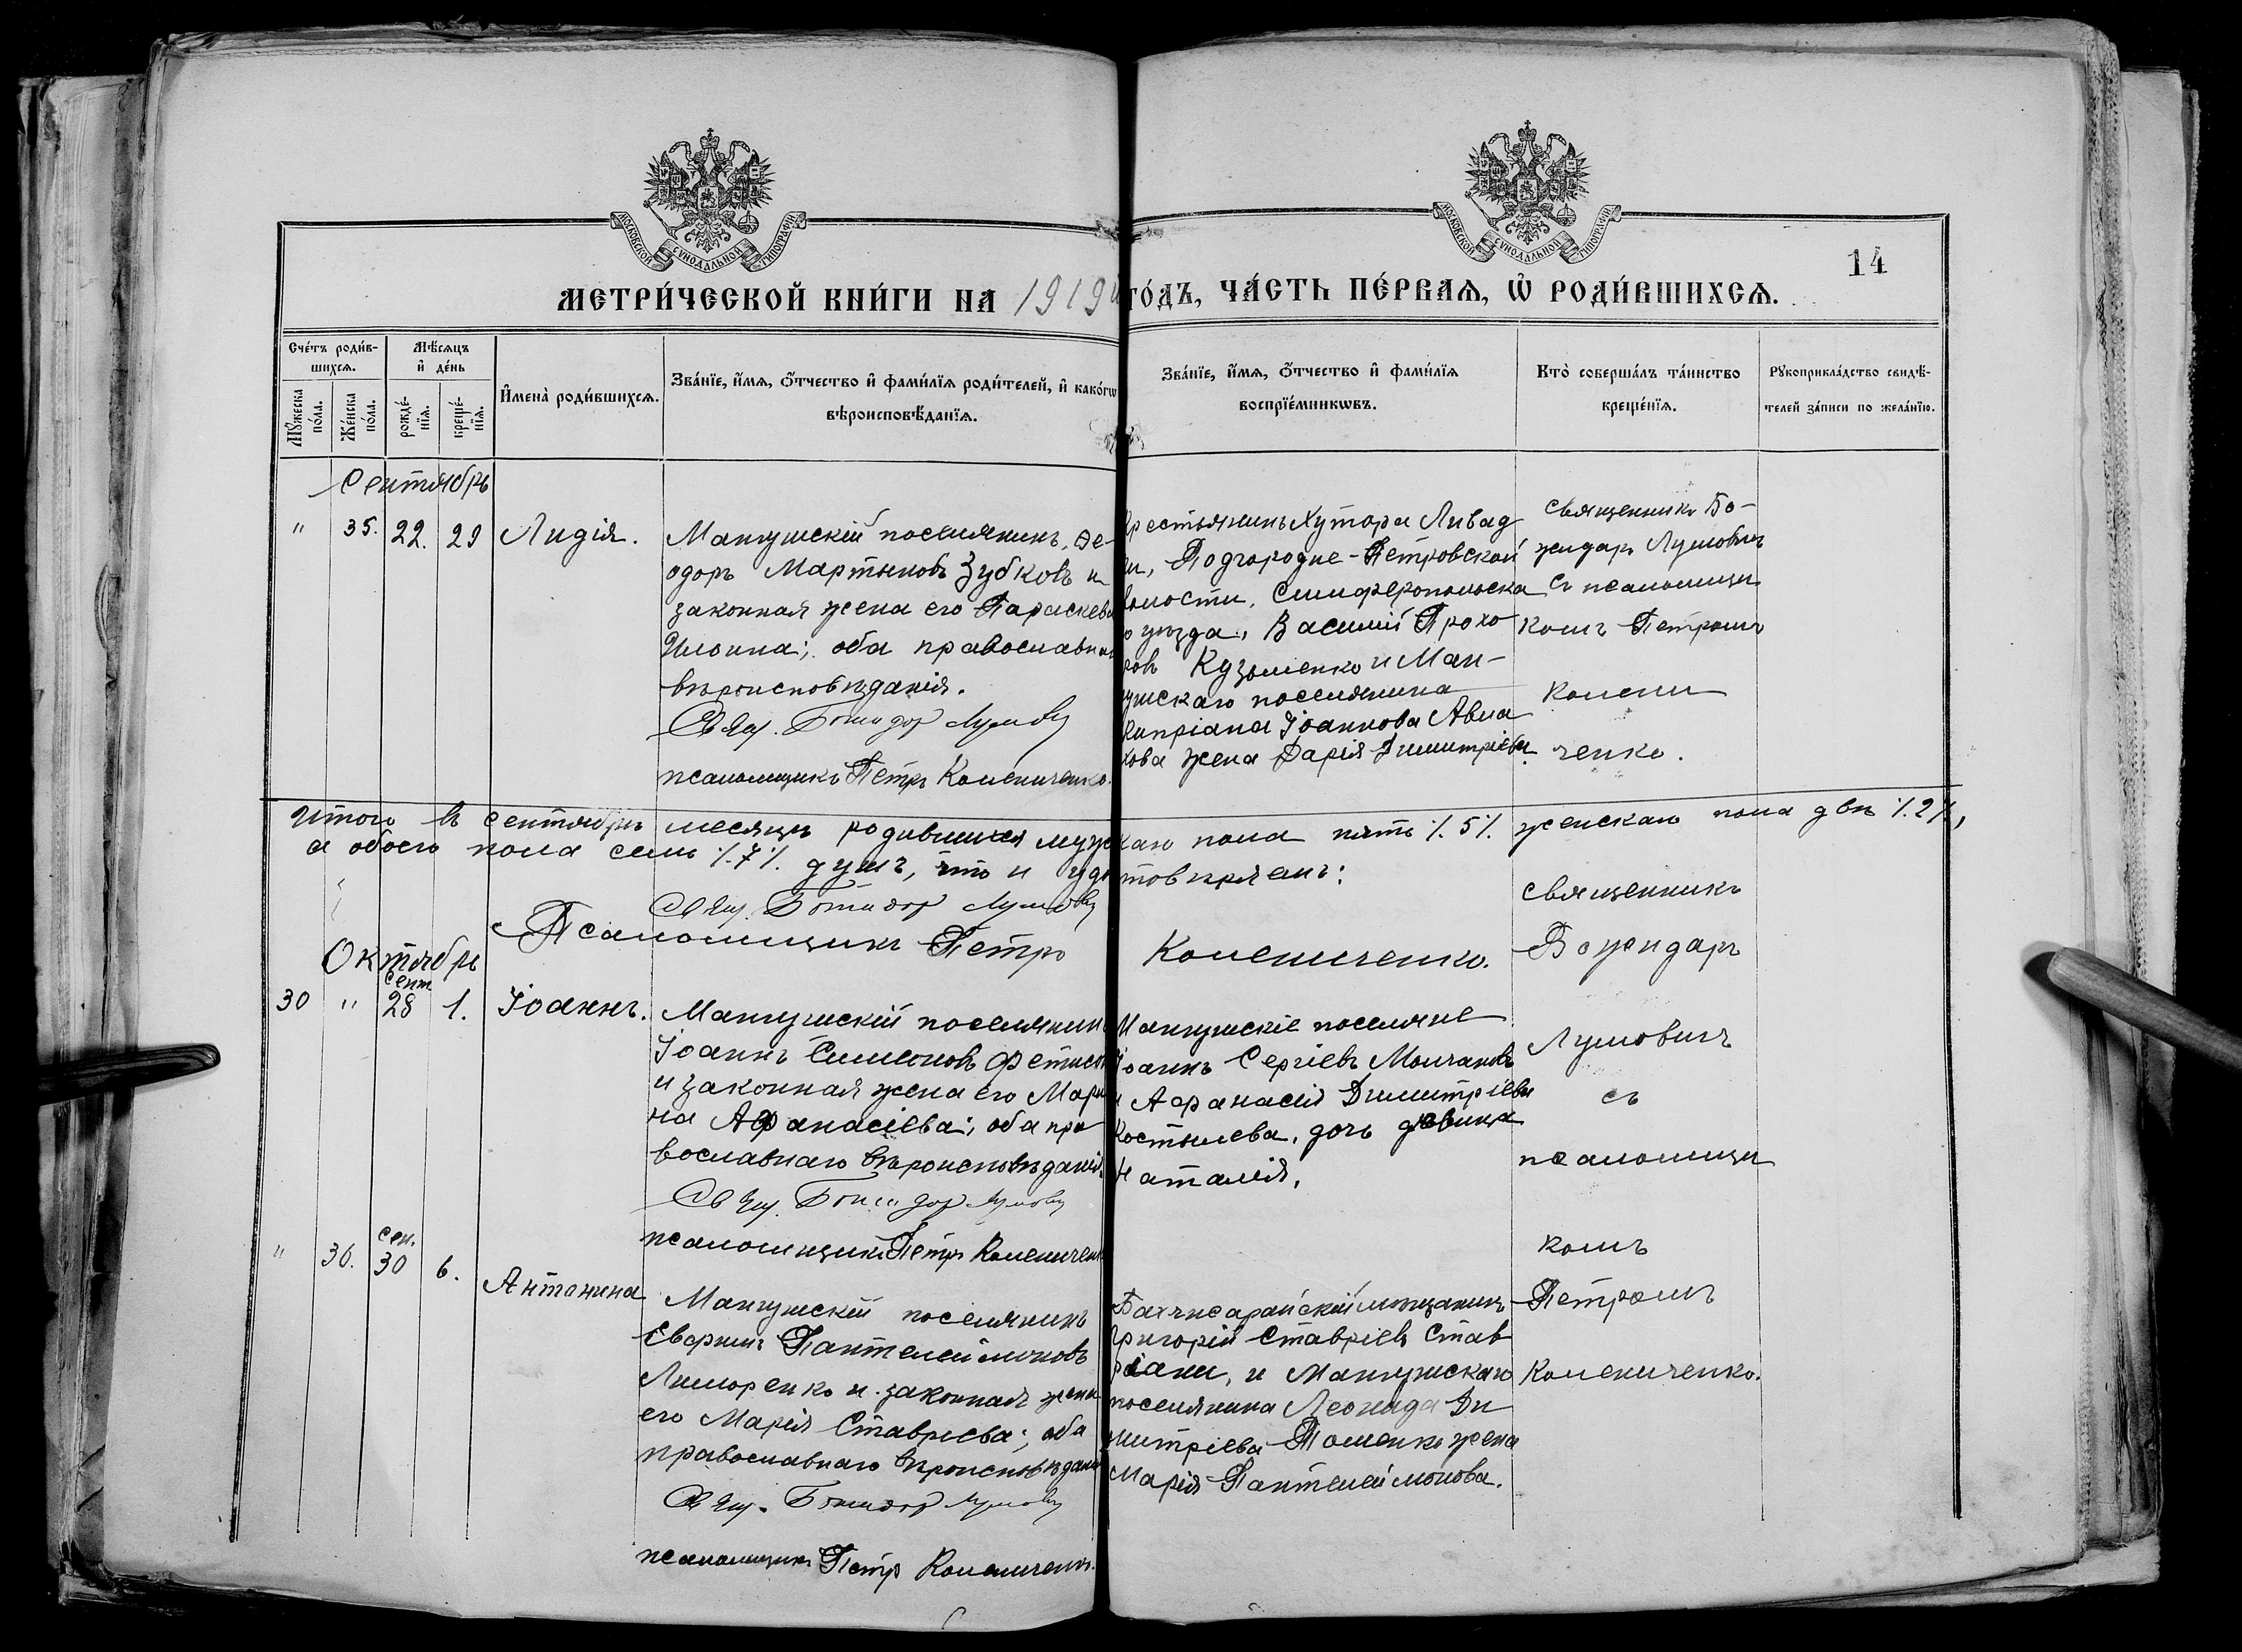 МОСКОВСКОЙ СѴНОДАЛЬНОЙ ТИПОГРАФІИ
МОСКОВСКОЙ СѴНОДАЛЬНОЙ ТИПОГРАФІИ
14
МЕТРИ́ЧЕСКОЙ КНИ́ГИ НА 1919й ГО́ДЪ, ЧА́СТЬ ПЕ́РВАѦ, Ѡ҆ РОДИ́ВШИХСѦ.
Сче́тъ роди́в-
шихсѧ.
Мѣ́сѧцъ
и҆ де́нь
Мꙋ́жеска
по́ла.
Же́нска
по́ла.
рожде́-
нїѧ.
креще́-
нїѧ.
И҆мена̀ роди́вшихсѧ.
Зва́нїе, и҆́мѧ, ѻ҆́тчество и҆ фами́лїѧ роди́телей, и҆ како́гѡ
вѣроисповѣ́данїѧ.
Зва́нїе, и҆́мѧ, ѻ҆́тчество и҆ фами́лїѧ
воспрїе́мникѡвъ.
Кто̀ соверша́лъ та́инство
креще́нїѧ.
Рꙋкоприкла́дство свидѣ́-
телей за́писи по жела́нїю.
Сентябрь
" 35. 22. 29 Лидія.
Мангушскій поселянинъ, Ѳе-
одоръ Мартыновъ Зубковъ и
законная жена его Параскева
Ильина; оба православнаго
вѣроисповѣданія.
Свящ. Божидар Лумович
псаломщикъ Петръ Коленченко.
Крестьянинъ Хутора Ливад
іи, Подгородне-Петровской
волости, Симферопольска
го уѣзда, Василій Прохо
ровъ Кузьменко и Ман-
гушскаго поселянина
Кипріана Іоаннова Авла
хова жена Дарія Димитріева
священникъ Бо-
жидаръ Лумовичъ
съ псаломщи
комъ Петромъ
Колени
ченко.
Итого въ сентябрѣ месяцѣ родившихся мужскаго пола пять ٪ 5 ٪ женскаго пола двѣ ٪ 2 ٪,
а обоего пола семь ٪ 7 ٪ душъ, что и удостовѣряемъ:
Свящ. Божидар Лумович
Псаломщикъ Петръ Колениченко.
Октябрь
30 " сент. 28 1. Іоаннъ.
Мангушскій поселянинъ
Іоаннъ Симеоновъ Фетисовъ
и законная жена его Мари
на Афанасіева; оба пра
вославнаго вѣроисповѣданія.
Свящ. Божидар Лумович
псаломщикъ Петръ Колениченко
Мангушскіе поселяне
Іоаннъ Сергіевъ Молчановъ
и Афанасія Димитріева
Костылева, дочь дѣвица
Наталія,
" 36. сен. 30 6. Антонина
Мангушскій поселянинъ
Евфимъ Пантелеимоновъ
Лиморенко и законная жена
его Марія Ставріева; оба
православнаго вѣроисповѣданія
Свящ. Божидар Лумович
псаломщикъ Петръ Колениченко.
Бахчисарайскій мѣщанинъ
Григорій Ставріевъ Став
ріани, и Мангушскаго
поселянина Леонида Ди
митріева Поменко жена
Марія Пантелеимонова.
священникъ
Божидаръ
Лумовичъ
съ
псаломщи
комъ
Петромъ
Колениченко.